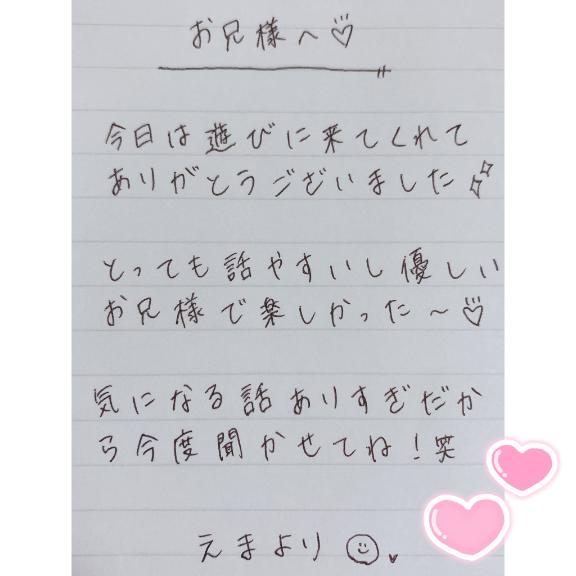 お兄様へ♡
今日は遊びに来てくれて
ありがとうございました✨
とっても話やすいし優しい
お兄様で楽しかった〜♡
気になる話ありすぎだか
ら今度聞かせてね！笑
えまより☺♥